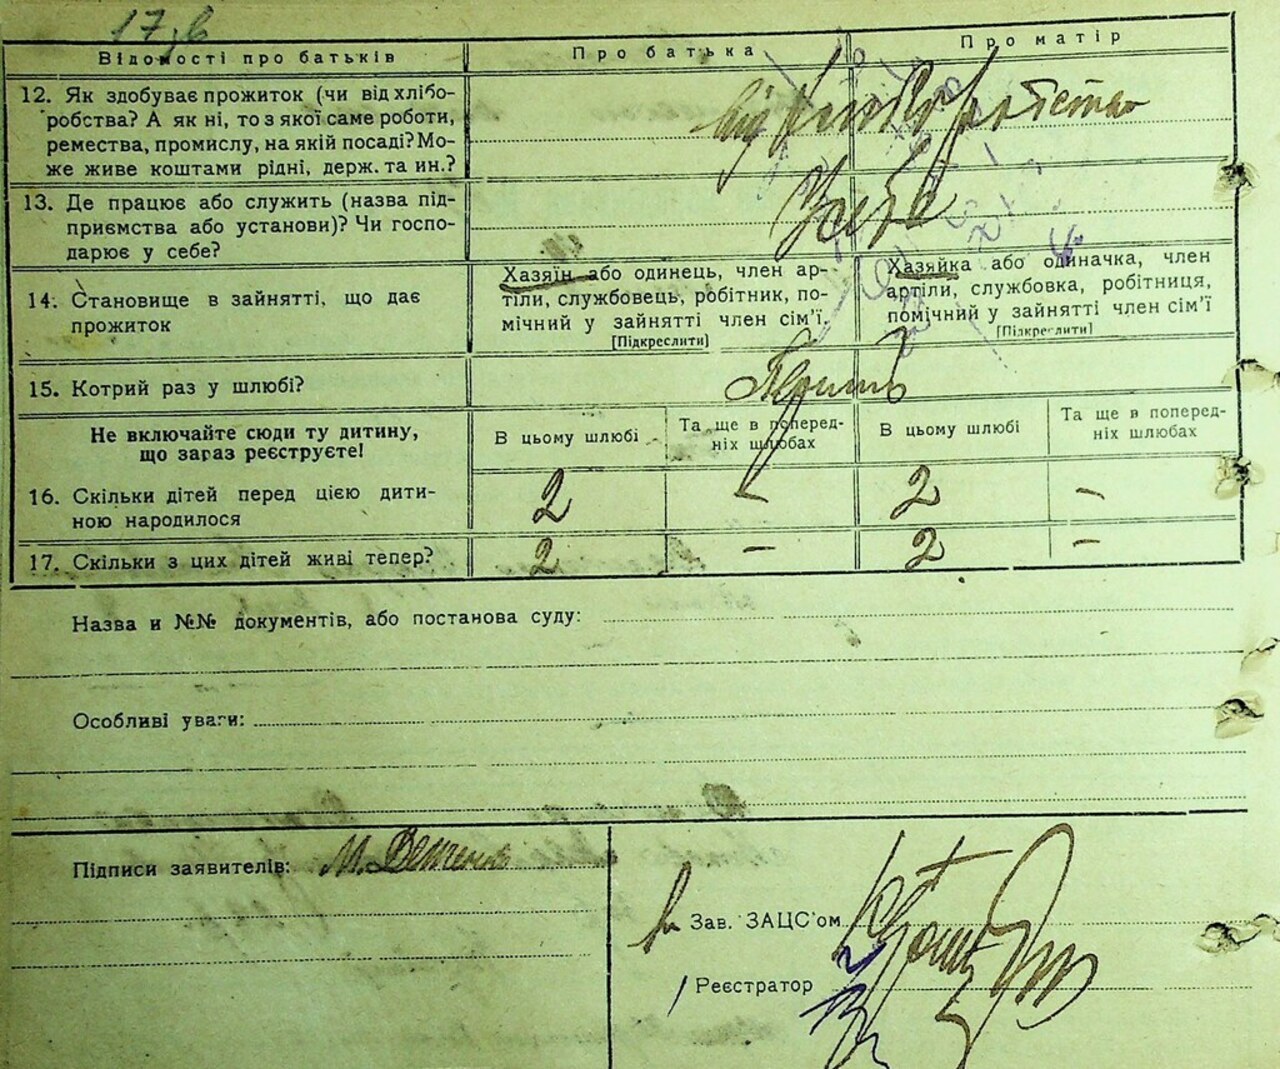 17
Відомості про батьків
Про батька
Про матір
12. Як здобуває прожиток (чи від хлібо-
робства? А як ні, то з якої саме роботи,
ремества, промислу, на якій посаді? Мо-
же живе коштами рідні, держ. та ин.?
від хліборобства
13. Де працює або служить (назва під-
приємства або установи)? Чи госпо-
дарює у себе?
У себе
14. Становище в зайнятті, що дає
прожиток
Хазяїн або одинець, член ар-
тіли, службовець, робітник, по-
мічний у зайнятті член сім'ї.
[Підкреслити]
Хазяйка або одиначка, член
артіли, службовка, робітниця,
помічний у зайнятті член сім'ї
[Підкреслити]
15. Котрий раз у шлюбі?
Перший
Не включайте сюди ту дитину,
що зараз реєструєте!
В цьому шлюбі
Та ще в поперед-
ніх шлюбах
В цьому шлюбі
Та ще в поперед-
ніх шлюбах
16. Скільки дітей перед цією дити-
ною народилося
2 – 2 –
17. Скільки з цих дітей живі тепер?
2 – 2 –
Назва и №№ документів, або постанова суду:
Особливі уваги:
Підписи заявителів:
М.
Зав. ЗАЦС'ом
Реєстратор